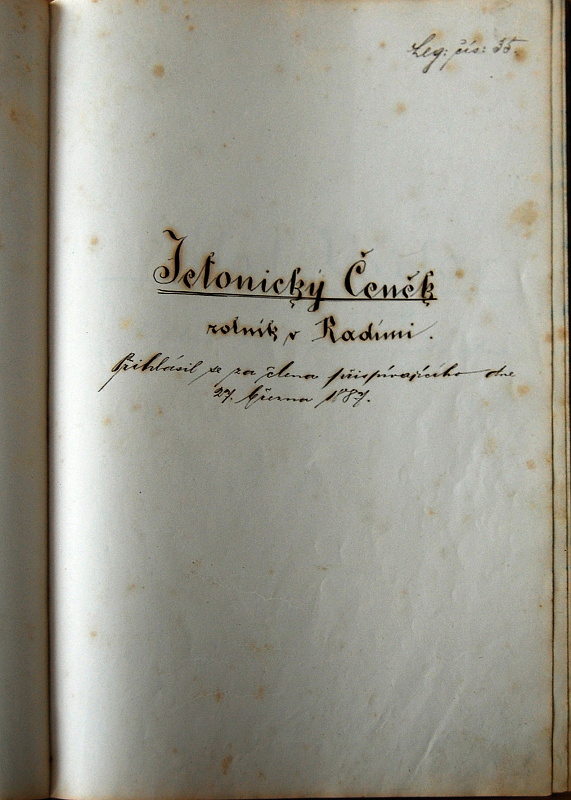 Leg: čís: 55.
Jetonický Čeněk
rolník v Radimi.
Přihlásil se za člena přispívajícího dne
27. března 1887.